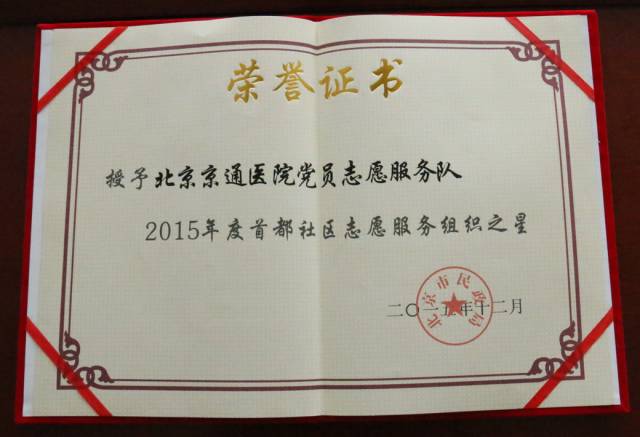 荣誉证书
授予北京京通医院党员志愿服务队
2015年度首都社区志愿服务组织之星
北京市民政局
二〇一五年十二月